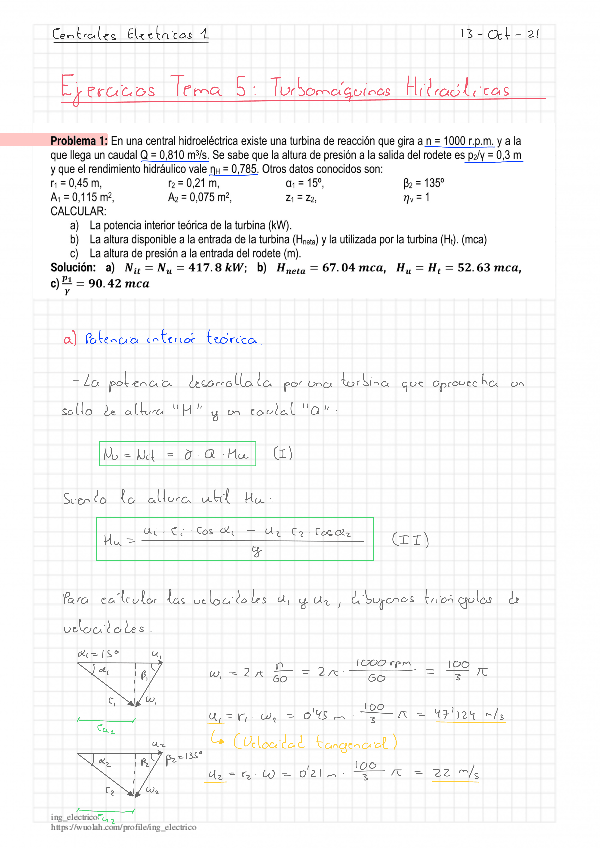 Centrales Electricas 1
13 - Oct - 21
Ejercicios Tema 5: Turbomáquinas Hidraúlicas
Problema 1: En una central hidroeléctrica existe una turbina de reacción que gira a n = 1000 r.p.m. y a la
que llega un caudal Q = 0,810 m³/s. Se sabe que la altura de presión a la salida del rodete es p₂/γ = 0,3 m
y que el rendimiento hidráulico vale η_H = 0,785. Otros datos conocidos son:
r₁ = 0,45 m, r₂ = 0,21 m, α₁ = 15º, β₂ = 135º
A₁ = 0,115 m², A₂ = 0,075 m², z₁ = z₂, η_v = 1
CALCULAR:
a) La potencia interior teórica de la turbina (kW).
b) La altura disponible a la entrada de la turbina (H_neta) y la utilizada por la turbina (H_t). (mca)
c) La altura de presión a la entrada del rodete (m).
Solución: a) N_it = N_u = 417.8 kW; b) H_neta = 67.04 mca, H_u = H_t = 52.63 mca,
c) p₁/γ = 90.42 mca
a) Potencia interior teórica.
- La potencia desarrollada por una turbina que aprovecha un
salto de altura "H" y un caudal "Q".
Nu = Nit = γ · Q · Hu (I)
Siendo la altura util Hu.
Hu = u₁ · c₁ · cos α₁ - u₂ c₂ · cos α₂ / g (II)
Para calcular las velocidades u₁ y u₂, dibujamos triangulos de
velocidades.
α₁ = 15º u₁
α₁ β₁
c₁ w₁
ω₁ = 2π n/60 = 2π · 1000 rpm/60 = 100/3 π
u₁ = r₁ ω₂ = 0'45 m · 100/3 π = 47'124 m/s
↳ (Velocidad tangencial)
u₂
α₂ β₂ β₂ = 135º
c₂ w₂
u₂ = r₂ · ω = 0'21 m · 100/3 π = 22 m/s
ing_electrico
https://wuolah.com/profile/ing_electrico